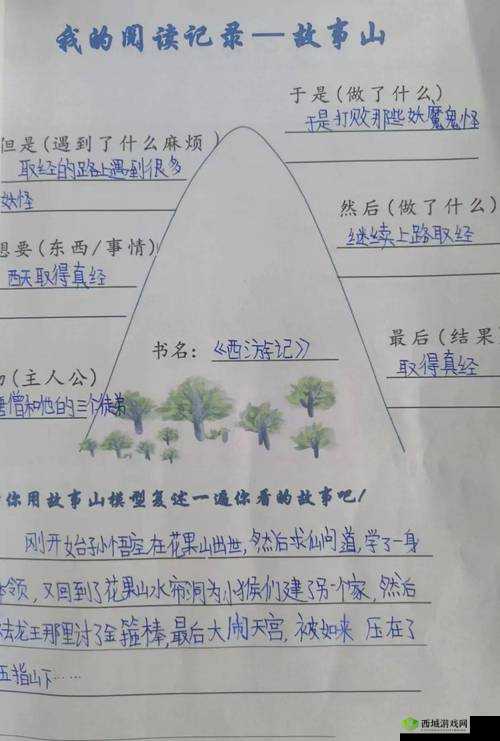 我的阅读记录—故事山
于是(做了什么)
于是打败那些妖魔鬼怪
但是(遇到了什么麻烦)
取经的路上遇到很多
妖怪
然后(做了什么)
继续上路取经
想要(东西/事情)
西天取得真经
最后(结果
取得真经
书名:《西游记》
(主人公)
唐僧和他的三个徒弟
你用故事山模型复述一遍你看的故事吧!
刚开始孙悟空在花果山出世,然后求仙问道,学了一身
本领,又回到了花果山水帘洞为小猴们建了另一个家,然后
去龙王那里讨了金箍棒,最后大闹天宫,被如来 压在了
五指山下……
西城游戏网